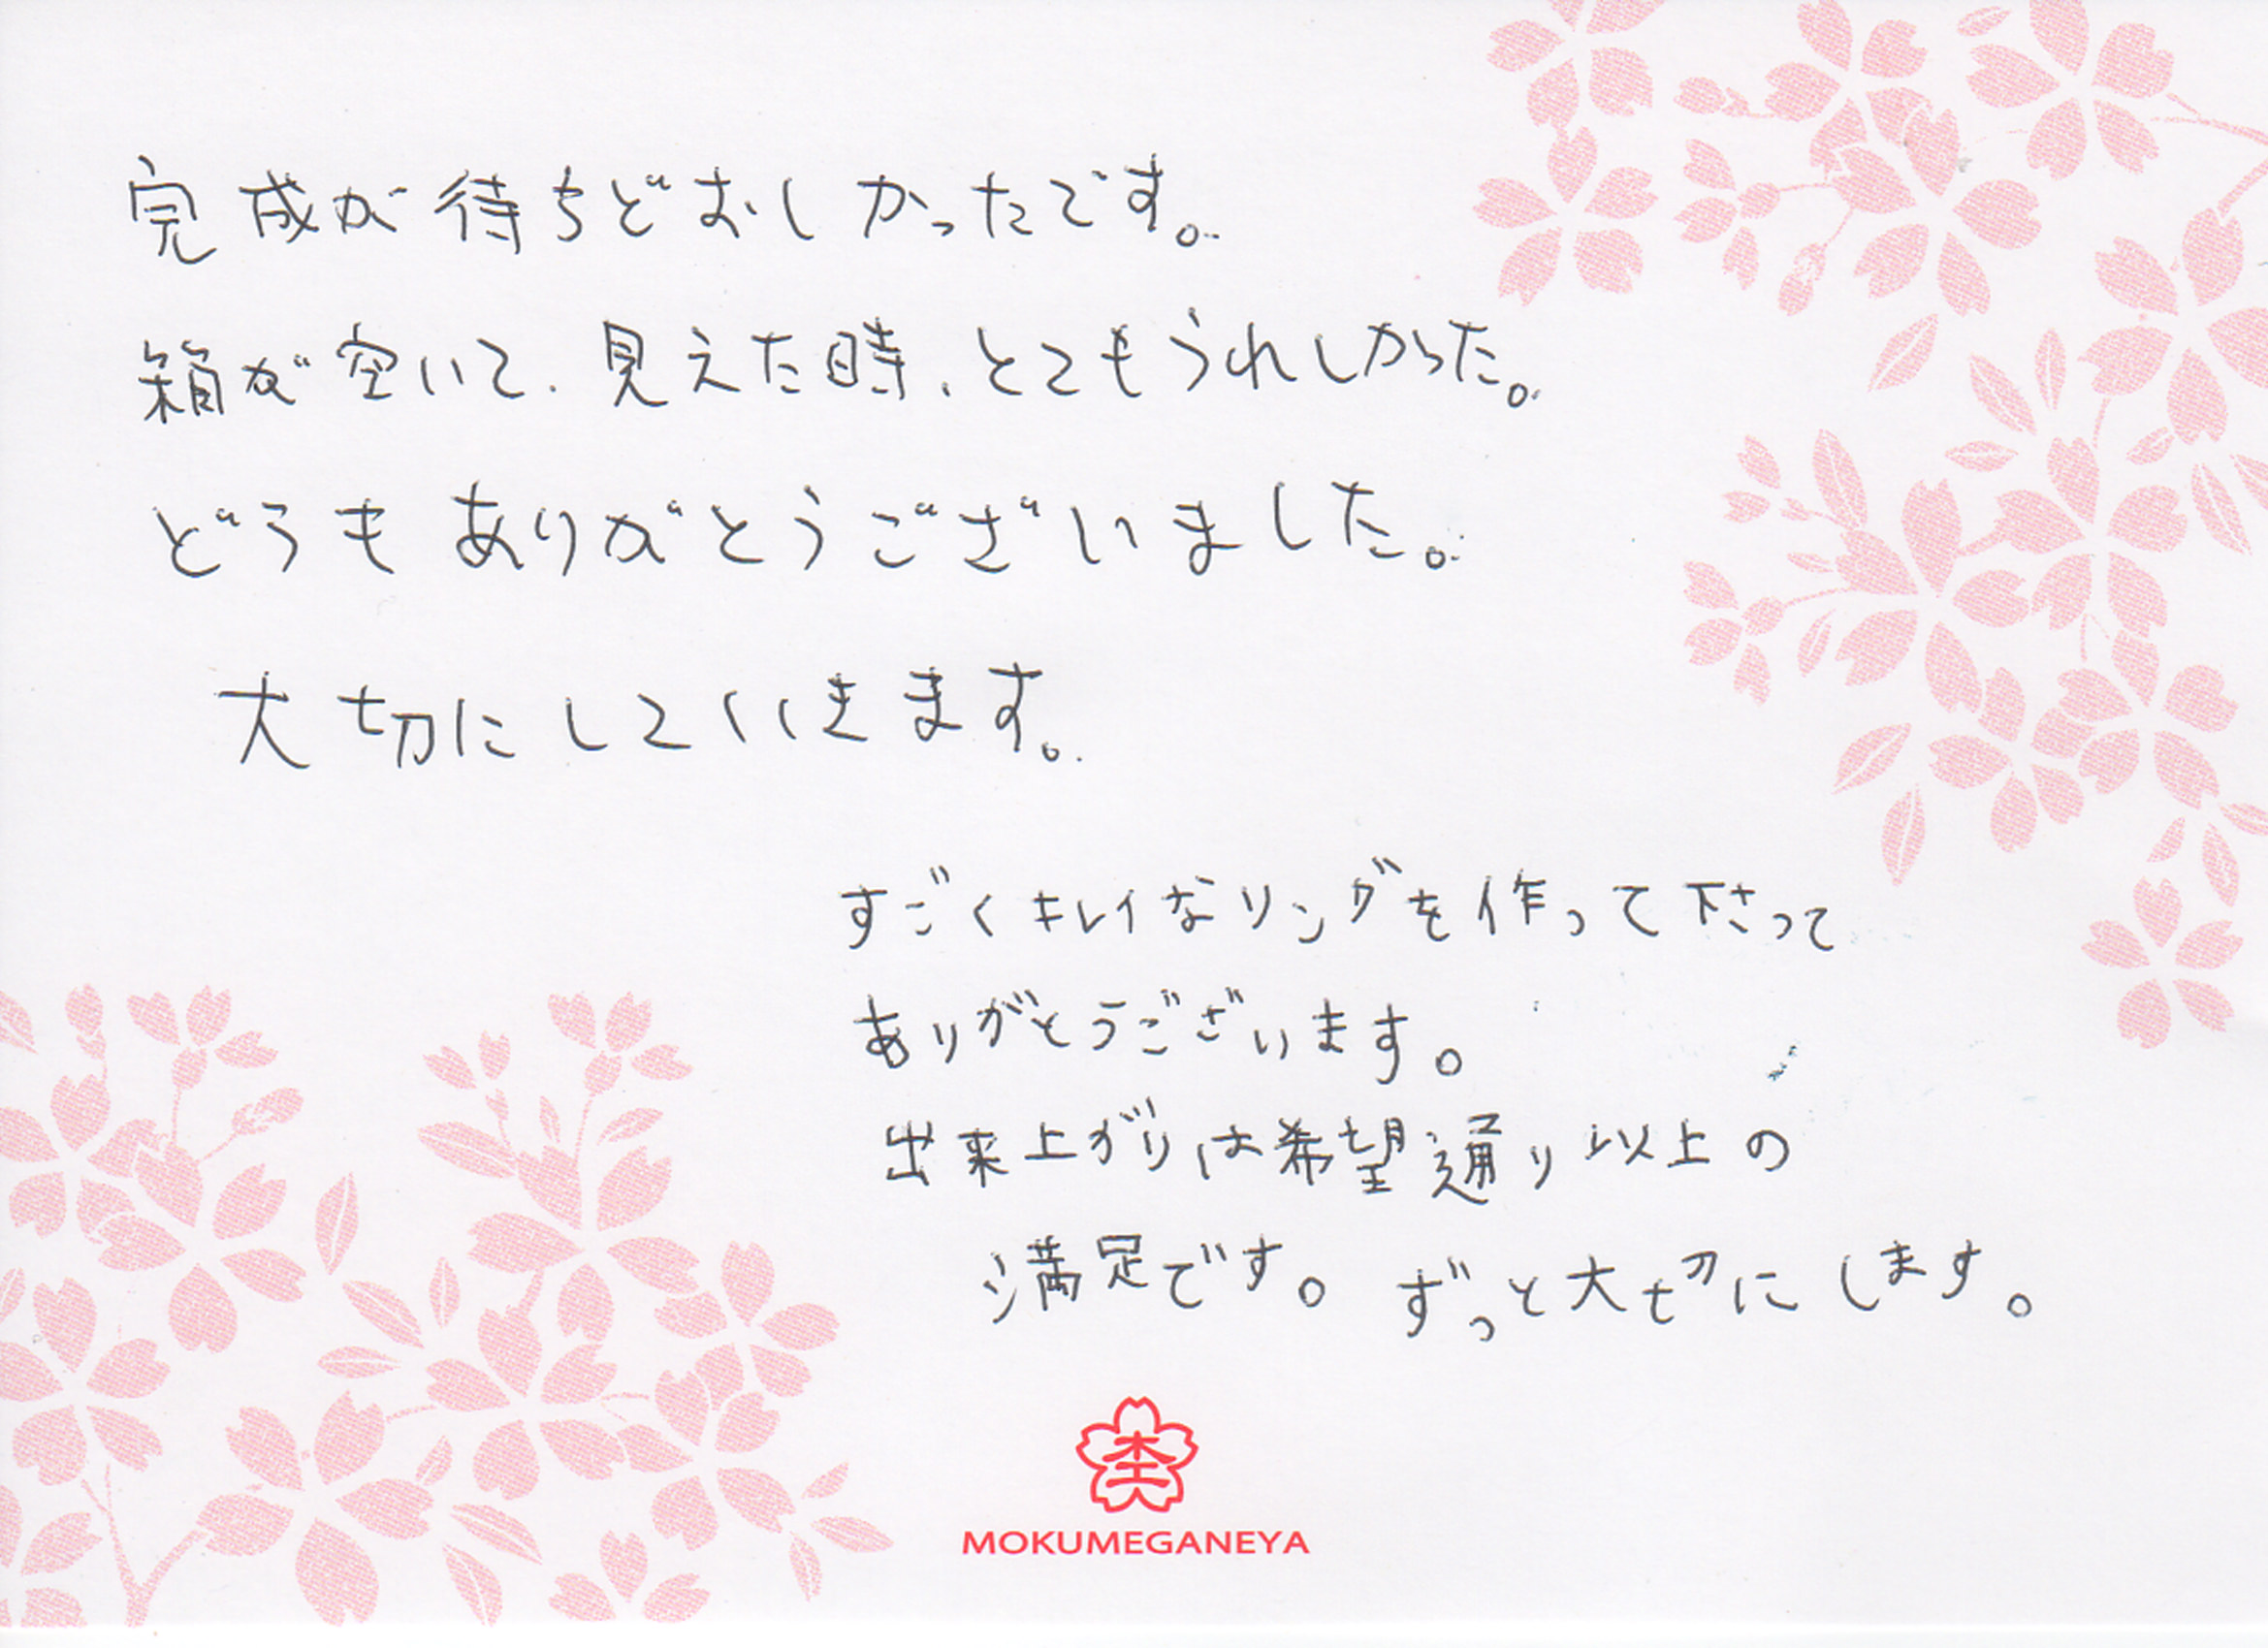 完成が待ちどおしかったです。
箱が空いて、見えた時、とてもうれしかった。
どうもありがとうございました。
大切にしていきます。
すごくキレイなリングを作って下さって
ありがとうございます。
出来上がりは希望通り以上の
満足です。ずっと大切にします。
MOKUMEGANEYA